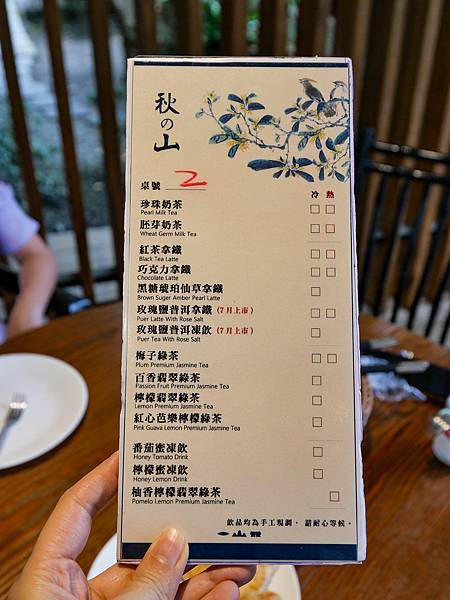 秋の山
桌號 2
冷 熱
珍珠奶茶
Pearl Milk Tea
胚芽奶茶
Wheat Germ Milk Tea
紅茶拿鐵
Black Tea Latte
巧克力拿鐵
Chocolate Latte
黑糖琥珀仙草拿鐵
Brown Suger Amber Pearl Latte
玫瑰鹽普洱拿鐵(7月上市)
Puer Latte With Rose Salt
玫瑰鹽普洱凍飲(7月上市)
Puer Tea With Rose Salt
梅子綠茶
Plum Premium Jasmine Tea
百香翡翠綠茶
Passion Fruit Premium Jasmine Tea
檸檬翡翠綠茶
Lemon Premium Jasmine Tea
紅心芭樂檸檬綠茶
Pink Guava Lemon Premium Jasmine Tea
番茄蜜凍飲
Honey Tomato Drink
檸檬蜜凍飲
Honey Lemon Drink
柚香檸檬翡翠綠茶
Pomelo Lemon Premium Jasmine Tea
飲品均為手工現調, 請耐心等候。